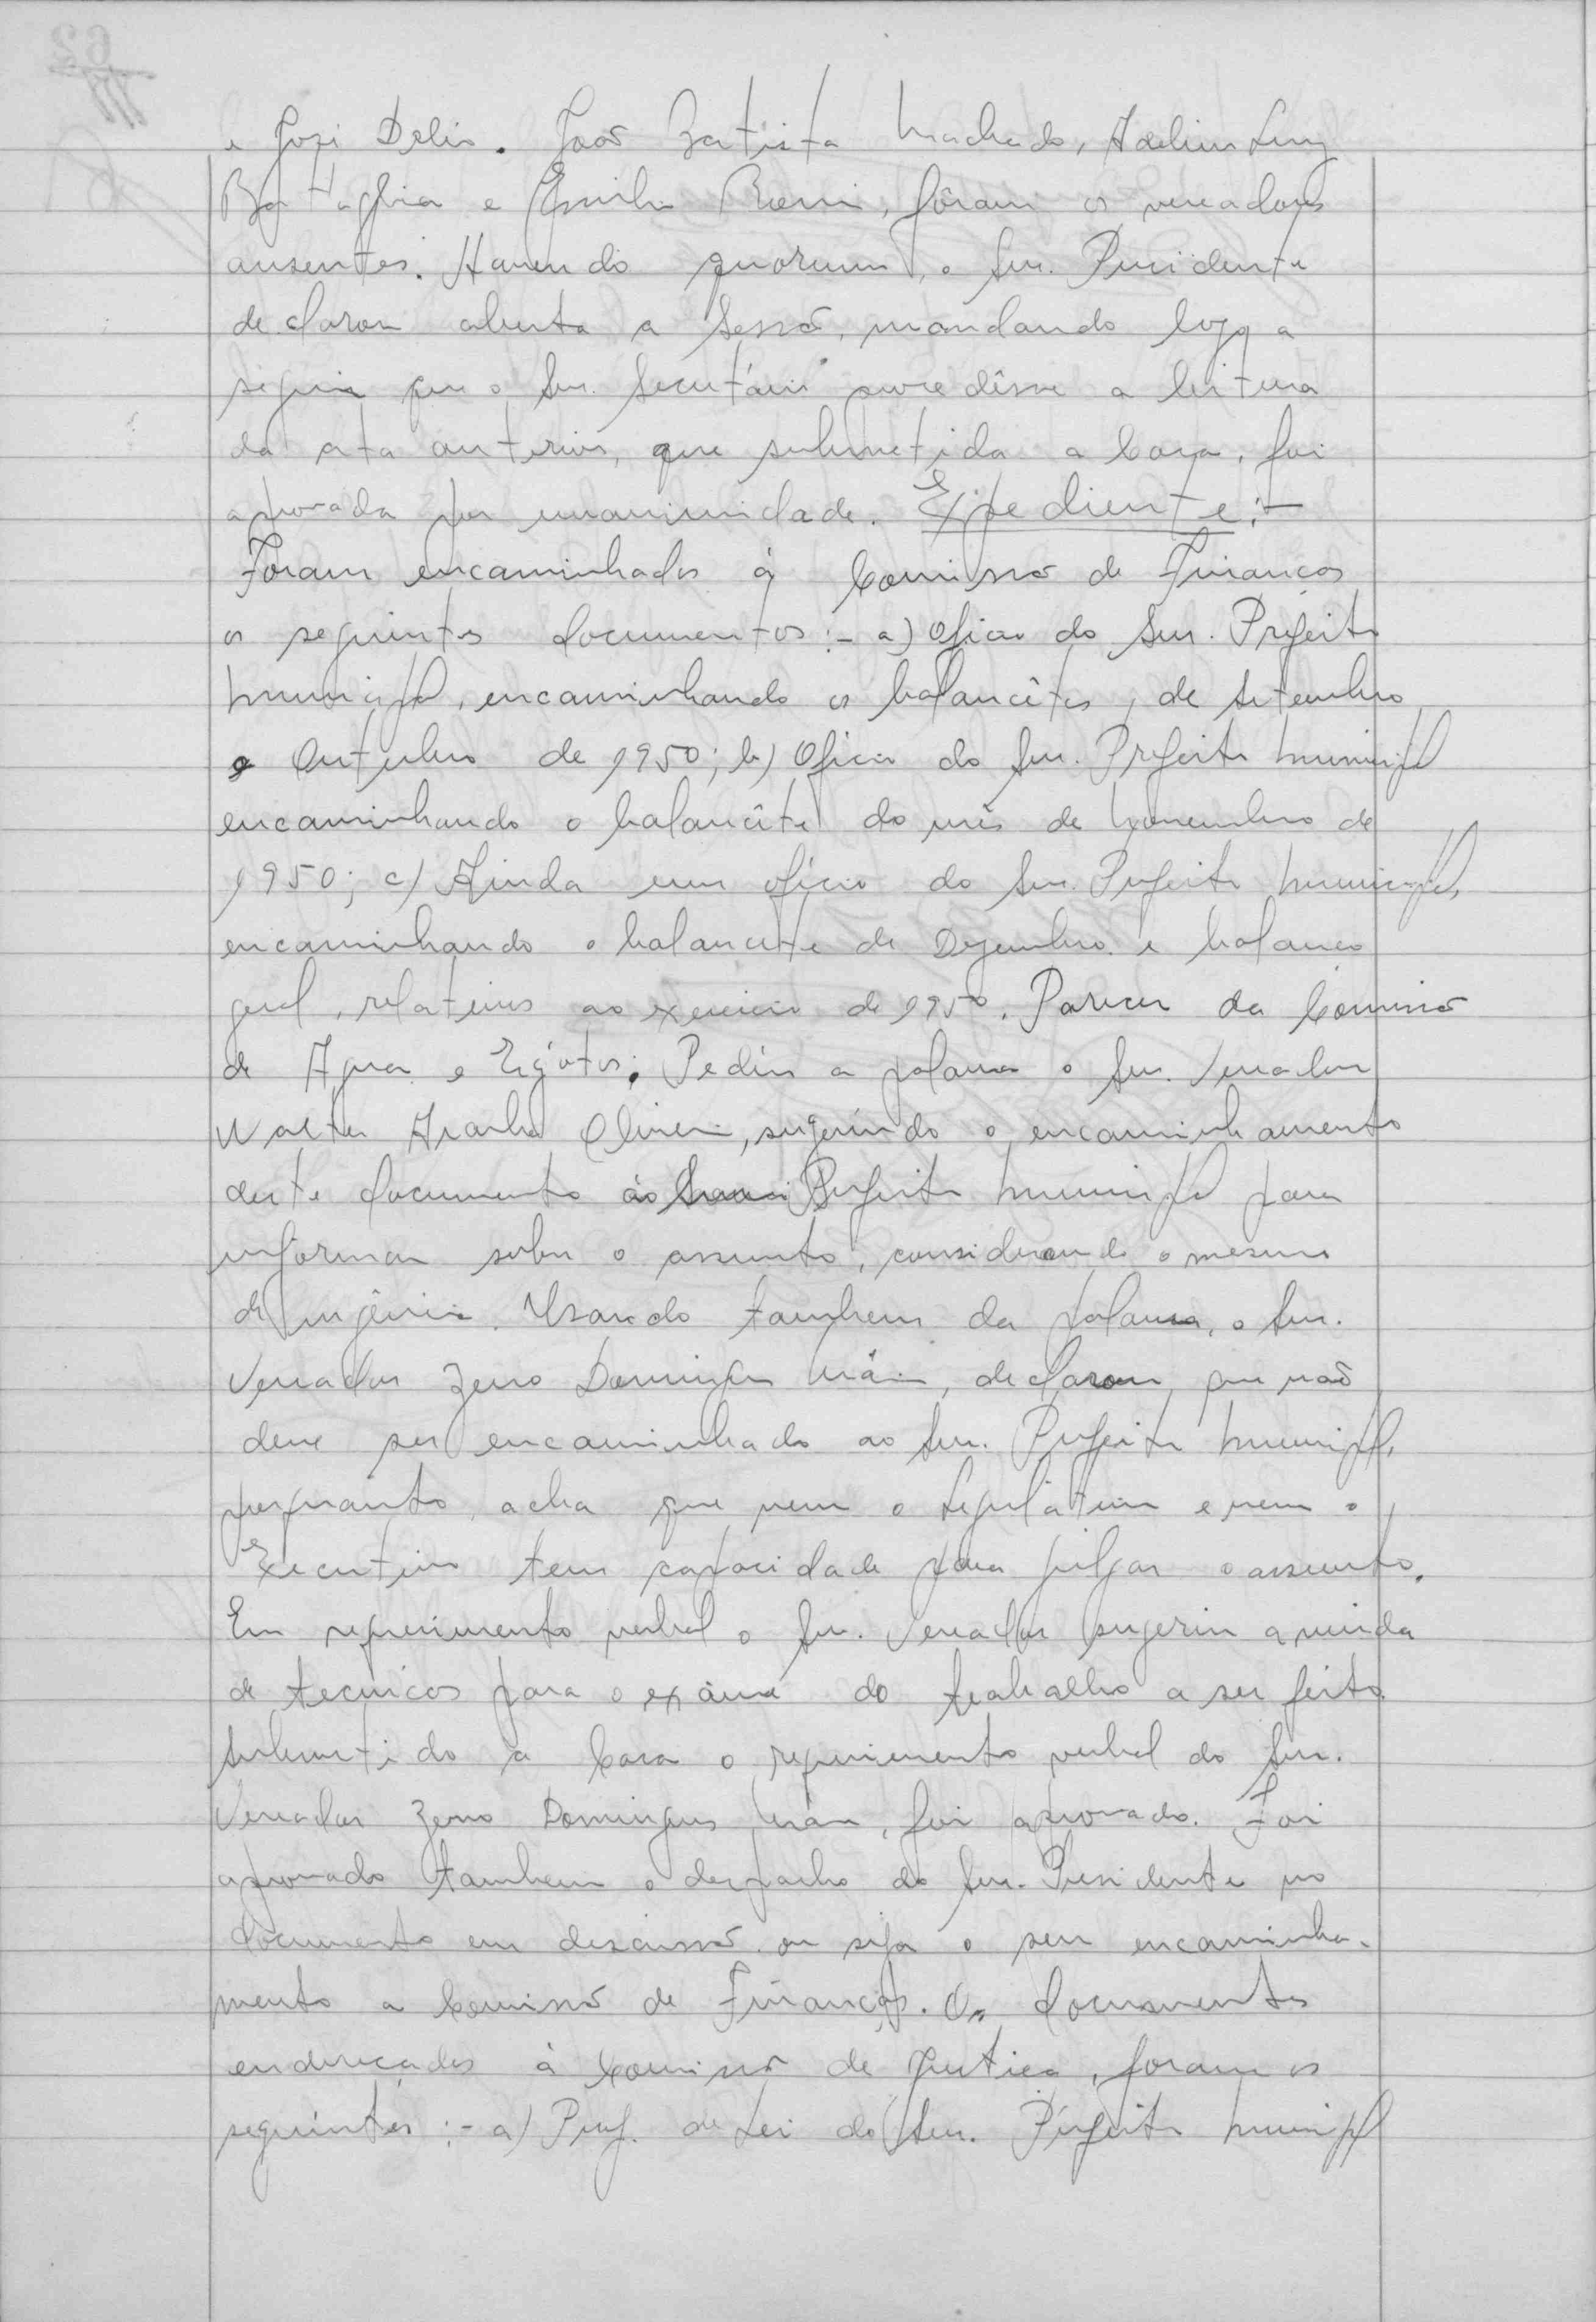 e José Delis. João Batista Machado, Adelino Luiz
Battaglia e Emilio Romi, fôram os vereadores
ausentes. Havendo quorum, o Snr. Presidente
declarou aberta a sessão, mandando logo a
seguir que o Snr. Secretário procedêsse a leitura
da ata anterior, que submetida a Casa, foi
aprovada por unanimidade. Expediente:-
Foram encaminhados á Comissão de Finanças
os seguintes documentos:- a) Oficio do Snr. Prefeito
Municipal, encaminhando os balancêtes, de Setembro
e Outubro de 1950; b) Oficio do Snr. Prefeito Municipal
encaminhando o balancête do mês de Novembro de
1950; c) Ainda um ofício do Snr. Prefeito Municipal,
encaminhando o balancete de Dezembro e balanço
geral, relativos ao exercicio de 1950. Parecer da Comissão
de Agua e Esgotos. Pediu a palavra o Snr. Vereador
Walter Aranha Oliveira, sugerindo o encaminhamento
deste documento ao Prefeito Municipal para
informar sobre o assunto, considerando o mesmo
de urgência. Usando tambem da palavra, o Snr.
Vereador Zeno Domingues Maia, declarou que não
deve ser encaminhado ao Snr. Prefeito Municipal,
porquanto acha que nem o Legislativo e nem o
Executivo tem capacidade para julgar o assunto.
Em requerimento verbal o Snr. Vereador sugeriu a vinda
de tecnicos para o exâme do trabalho a ser feito
Submetido a Casa o requerimento verbal do Snr.
Vereador Zeno Domingues Maia, foi aprovado. Foi
aprovado tambem o despacho do Snr. Presidente no
documento em discussão ou seja o seu encaminha-
mento a Comissão de Finanças. Os documentos
endereçados à Comissão de Justiça, foram os
seguintes:- a) Proj. de Lei do Snr. Prefeito Municipal